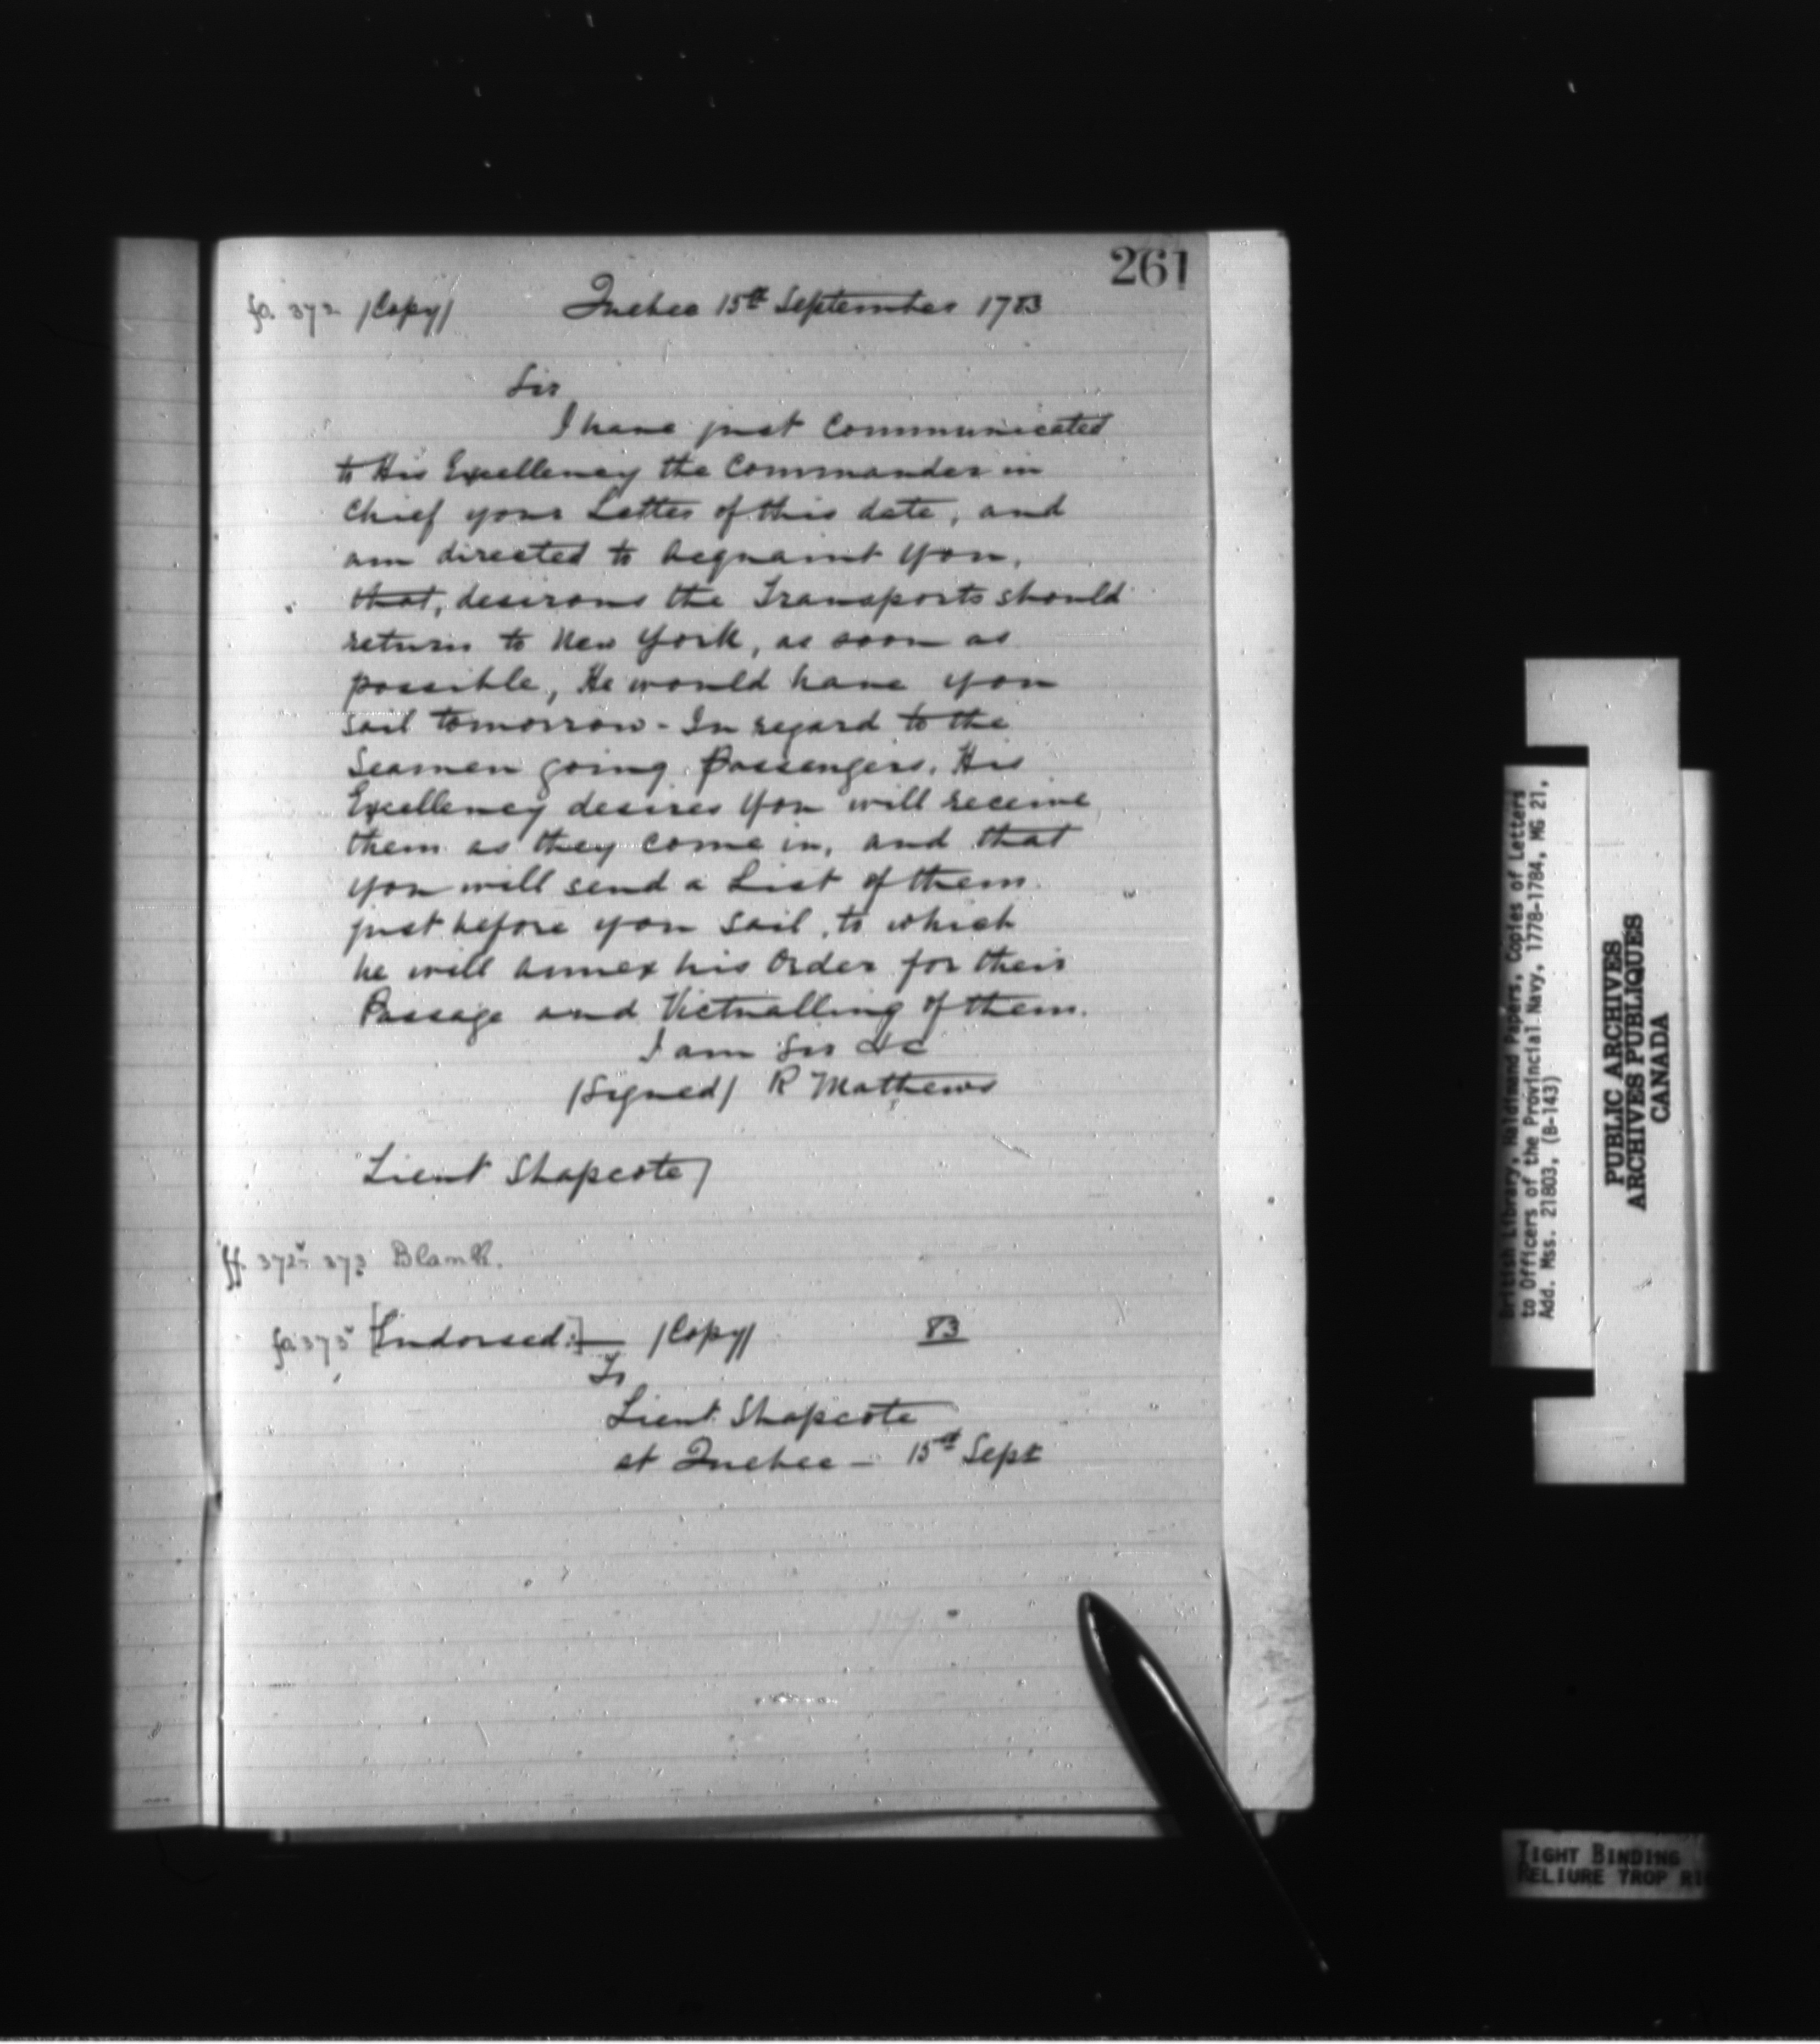 261
fo. 372 /Copy/ Quebec 15th September 1783
Sir
I have just Communicated
to His Excellency the Commander in
Chief your Letter of this date, and
am directed to Acquaint You,
that, desirous the Transports should
return to New York, as soon as
possible, He would have you
sail tomorrow - In regard to the
Seamen going Passengers, His
Excellency desires You will receive
them as they come in, and that
you will send a List of them
just before you sail, to which
he will annex his Order for their
Passage and Victualling of them.
I am Sir &c
/Signed/ R Mathews
Lieut Shapcote/
ff. 372v 373 Blank.
fo. 373v [Endorsed:]— /Copy/ 83
To
Lieut. Shapcote
at Quebec — 15th Sept
British Library, Haldimand Papers, Copies of Letters
to Officers of the Provincial Navy, 1778-1784, MG 21,
Add. Mss. 21803, (B-143)
PUBLIC ARCHIVES
ARCHIVES PUBLIQUES
CANADA
TIGHT BINDING
RELIURE TROP RI